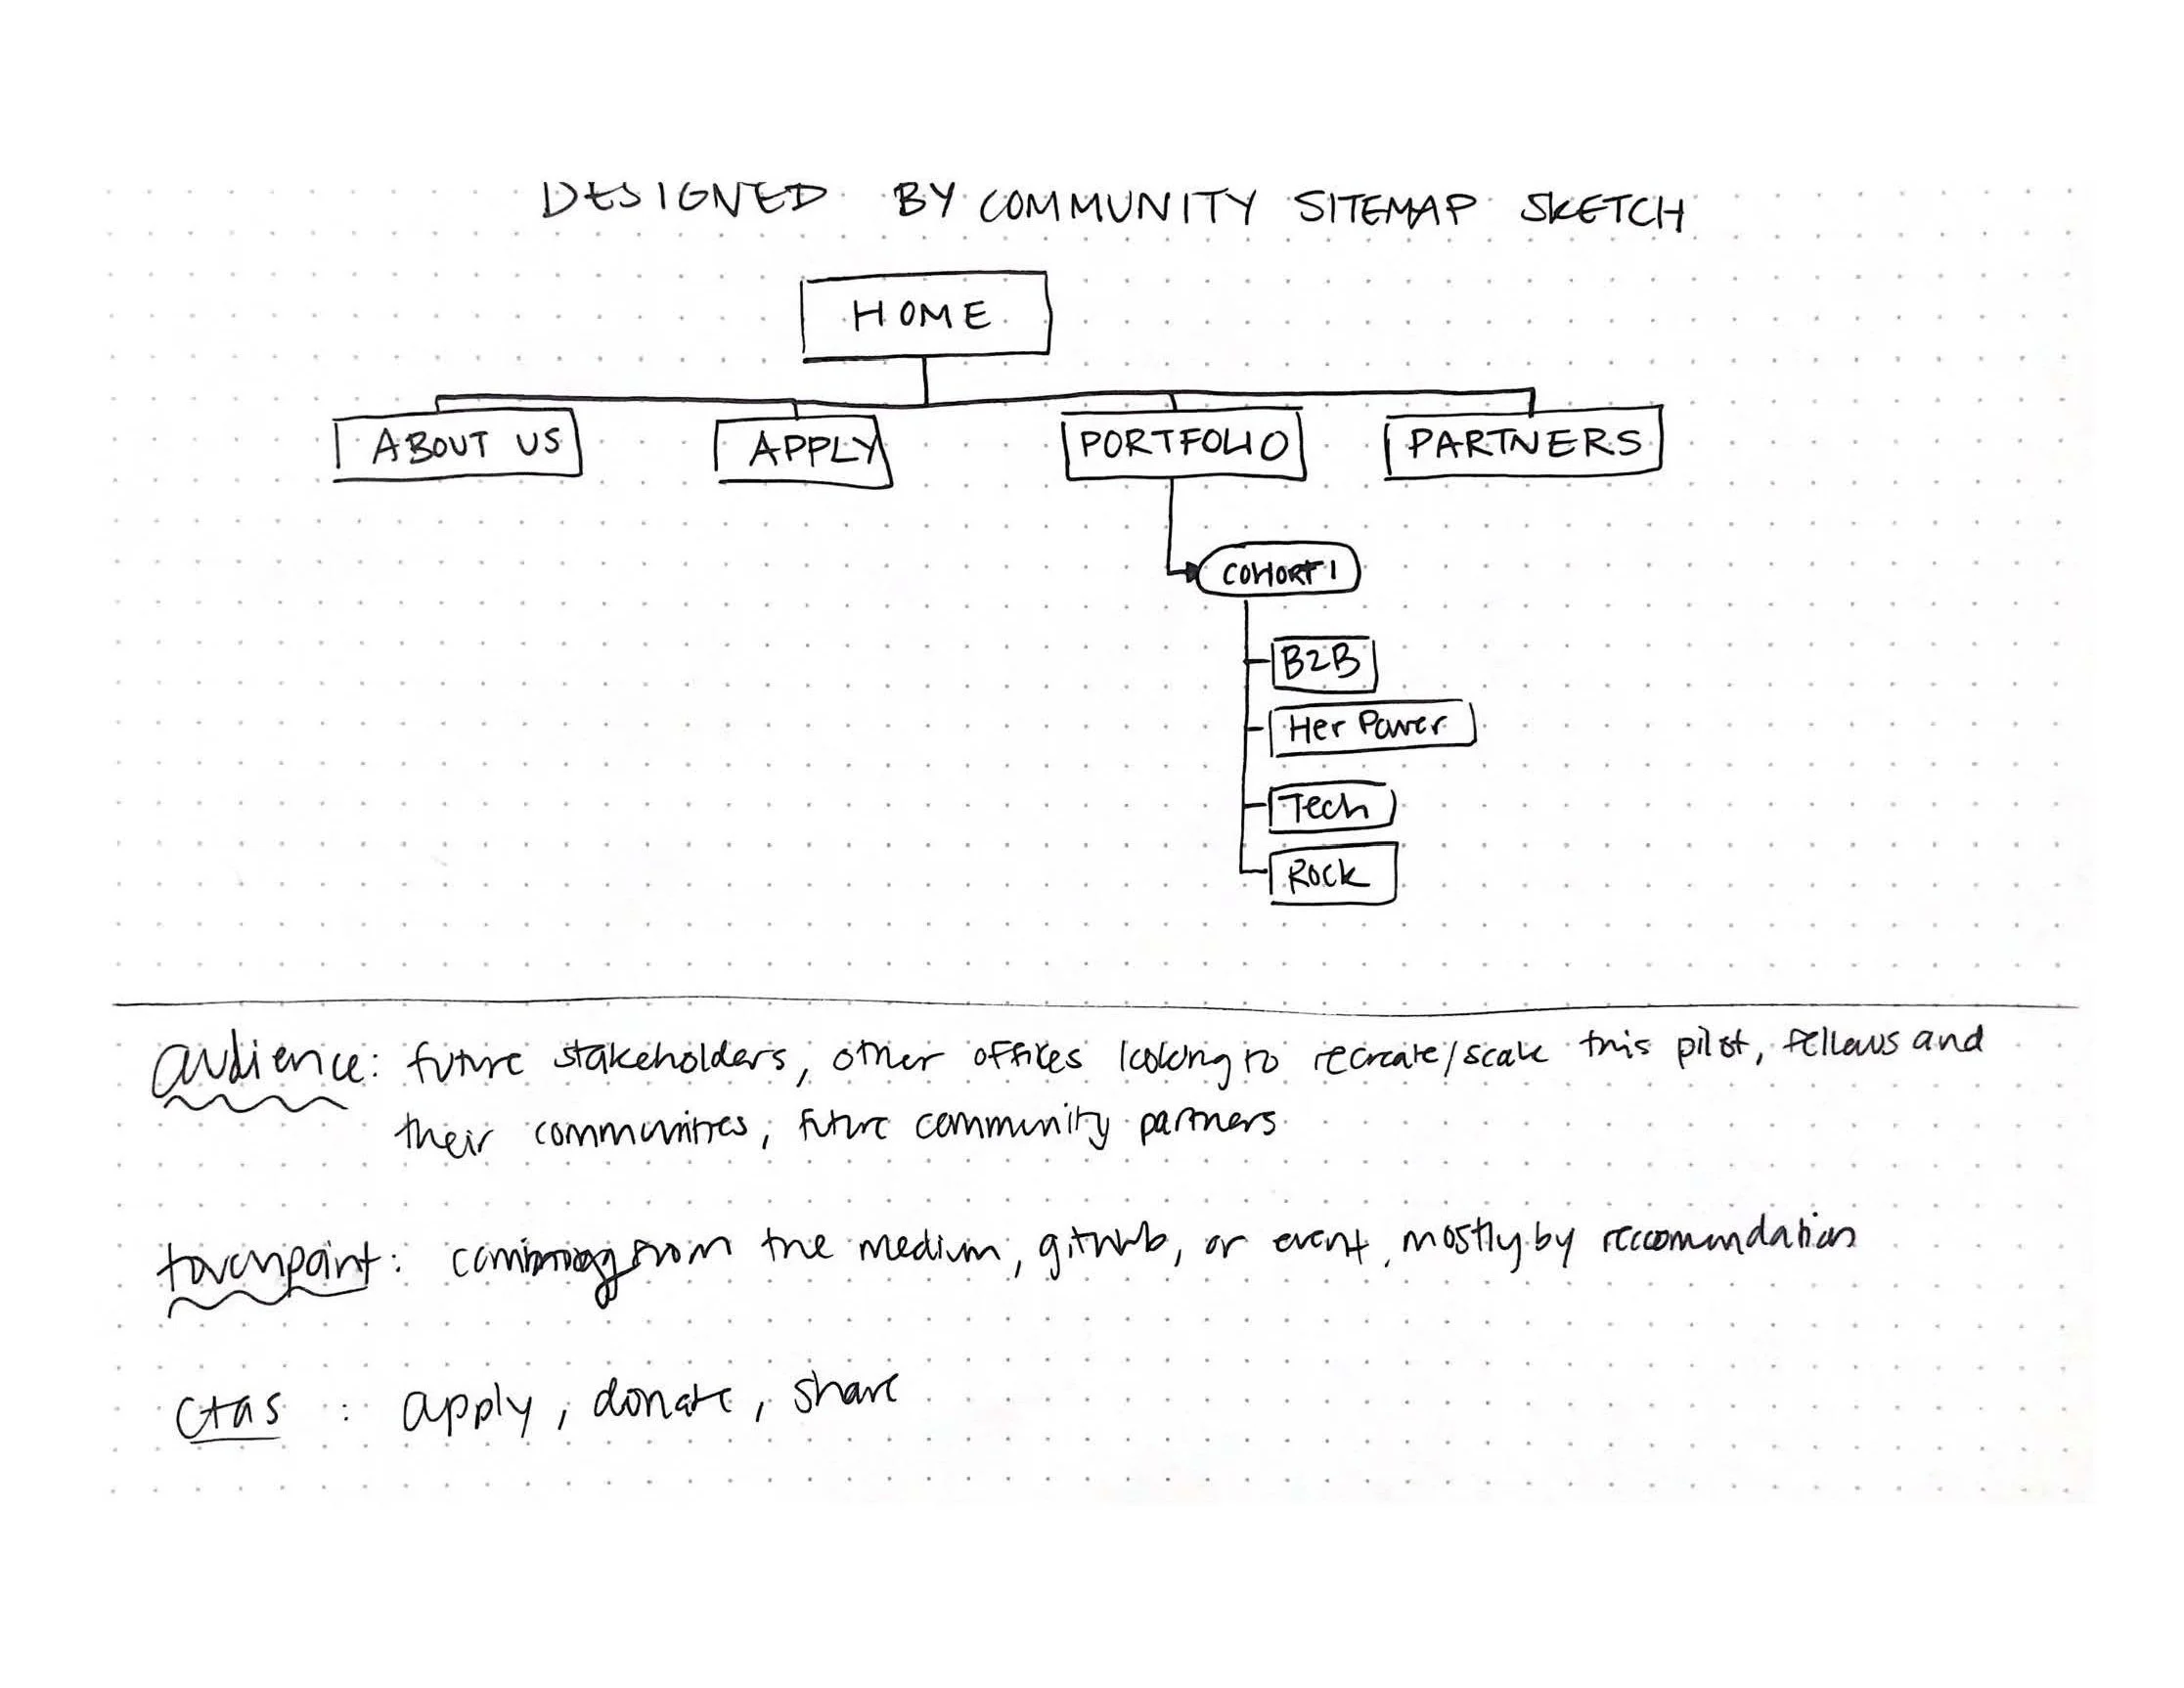 DESIGNED BY COMMUNITY SITEMAP SKETCH
HOME
ABOUT US APPLY PORTFOLIO PARTNERS
COHORT 1
B2B
Her Power
Tech
Rock
audience: future stakeholders, other offices looking to recreate/scale this pilot, fellows and
their communities, future community partners
touchpoint: coming from the medium, github, or event, mostly by reccomendation
ctas : apply, donate, share